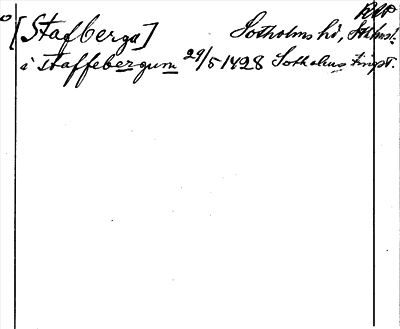 RAP
[Stafberga] Sotholms hd, Sthms l.
i staffebergum 29/5 1428 Sotholms tingst.